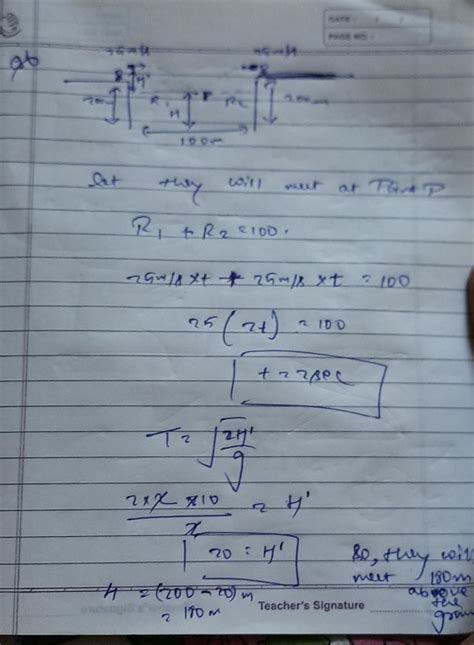 DATE : / /
PAGE NO. :
96
25m/s 25m/s
H'
R1 P R2 200m
H
100m
let they will meet at Point P
R1 + R2 = 100.
25m/s xt + 25m/s xt = 100
25 (2t) = 100
t = 2sec
T = √2H'/g
2x2x10/2 = H'
20 = H'
So, they will
meet 180m
above
the
groun
H = (200-20)m
= 180m
Teacher's Signature